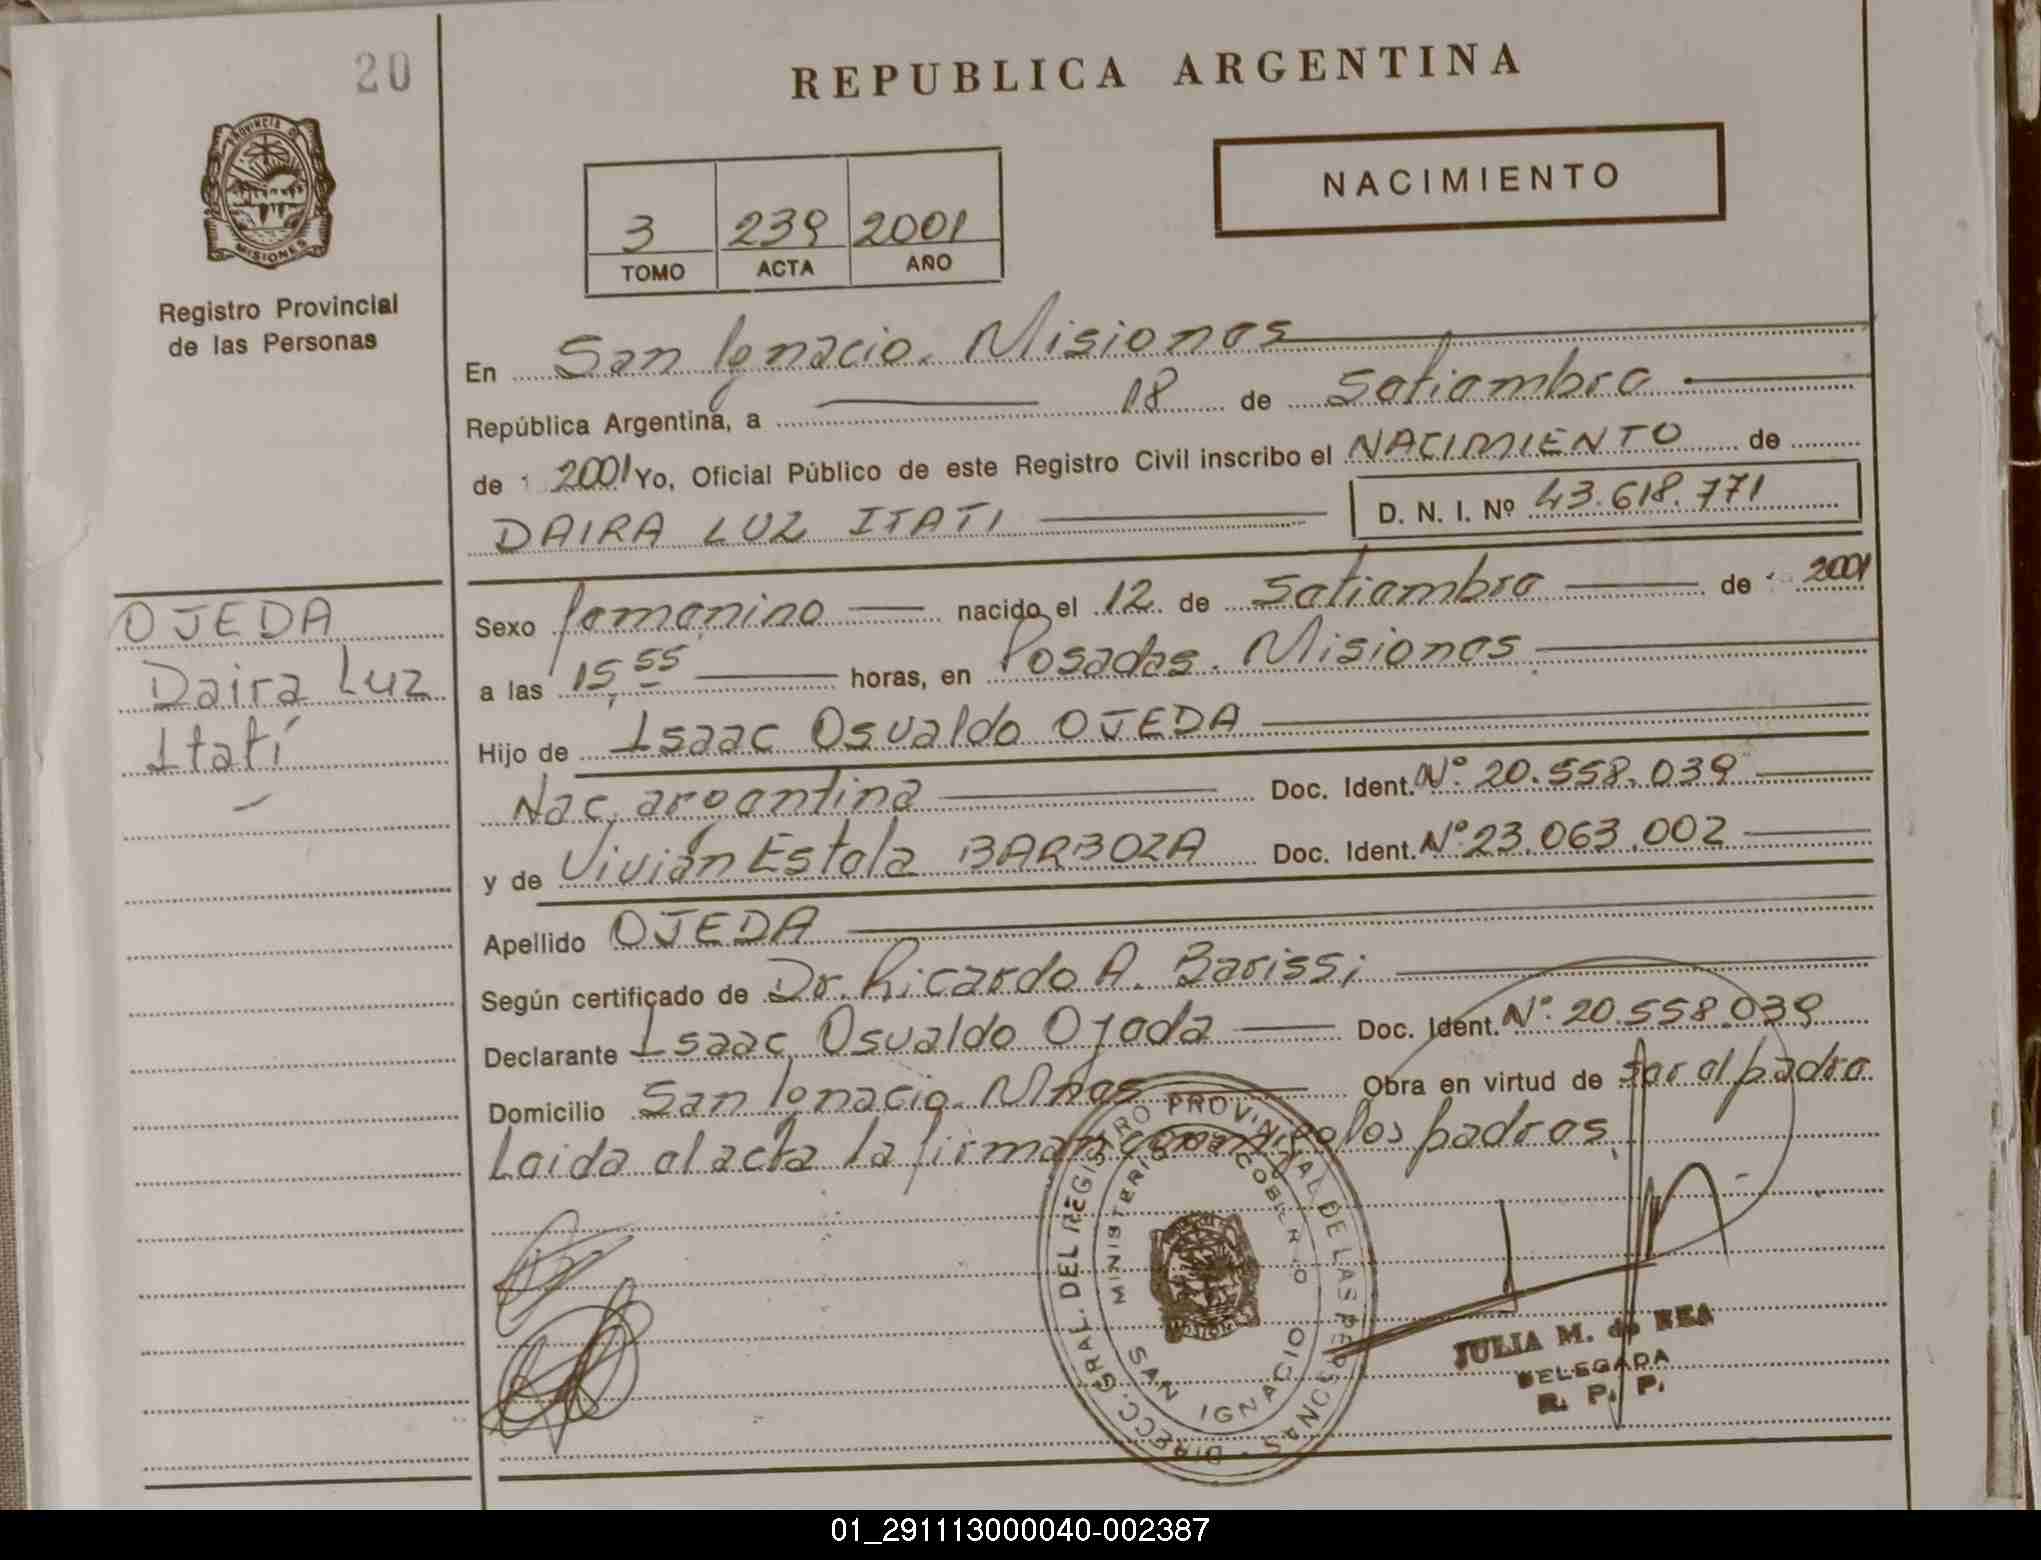 20
REPUBLICA ARGENTINA
PROVINCIA DE
MISIONES
Registro Provincial
de las Personas
NACIMIENTO
3 239 2001
TOMO ACTA AÑO
En San Ignacio. Misiones
República Argentina, a 18 de Setiembre
de 2001 Yo, Oficial Público de este Registro Civil inscribo el NACIMIENTO de
DAIRA LUZ ITATI D. N. I. Nº 43.618.771
OJEDA
Daira Luz
Itatí
Sexo femenino nacido el 12 de Setiembre de 2001
a las 15,55 horas, en Posadas. Misiones
Hijo de Isaac Osvaldo OJEDA
Nac. argentina Doc. Ident. Nº 20.558.039
y de Vivian Estela BARBOZA Doc. Ident. Nº 23.063.002
Apellido OJEDA
Según certificado de Dr. Ricardo A. Barissi
Declarante Isaac Osvaldo Ojeda Doc. Ident. Nº 20.558.039
Domicilio San Ignacio. Mnes Obra en virtud de ser el padre
Leida el acta la firman conmigo los padres
DIRECC. GRAL. DEL REGISTRO PROVINCIAL DE LAS PERSONAS
MINISTERIO DE GOBIERNO
MISIONES
SAN IGNACIO
JULIA M. de REA
DELEGADA
R. P. P.
01_291113000040-002387